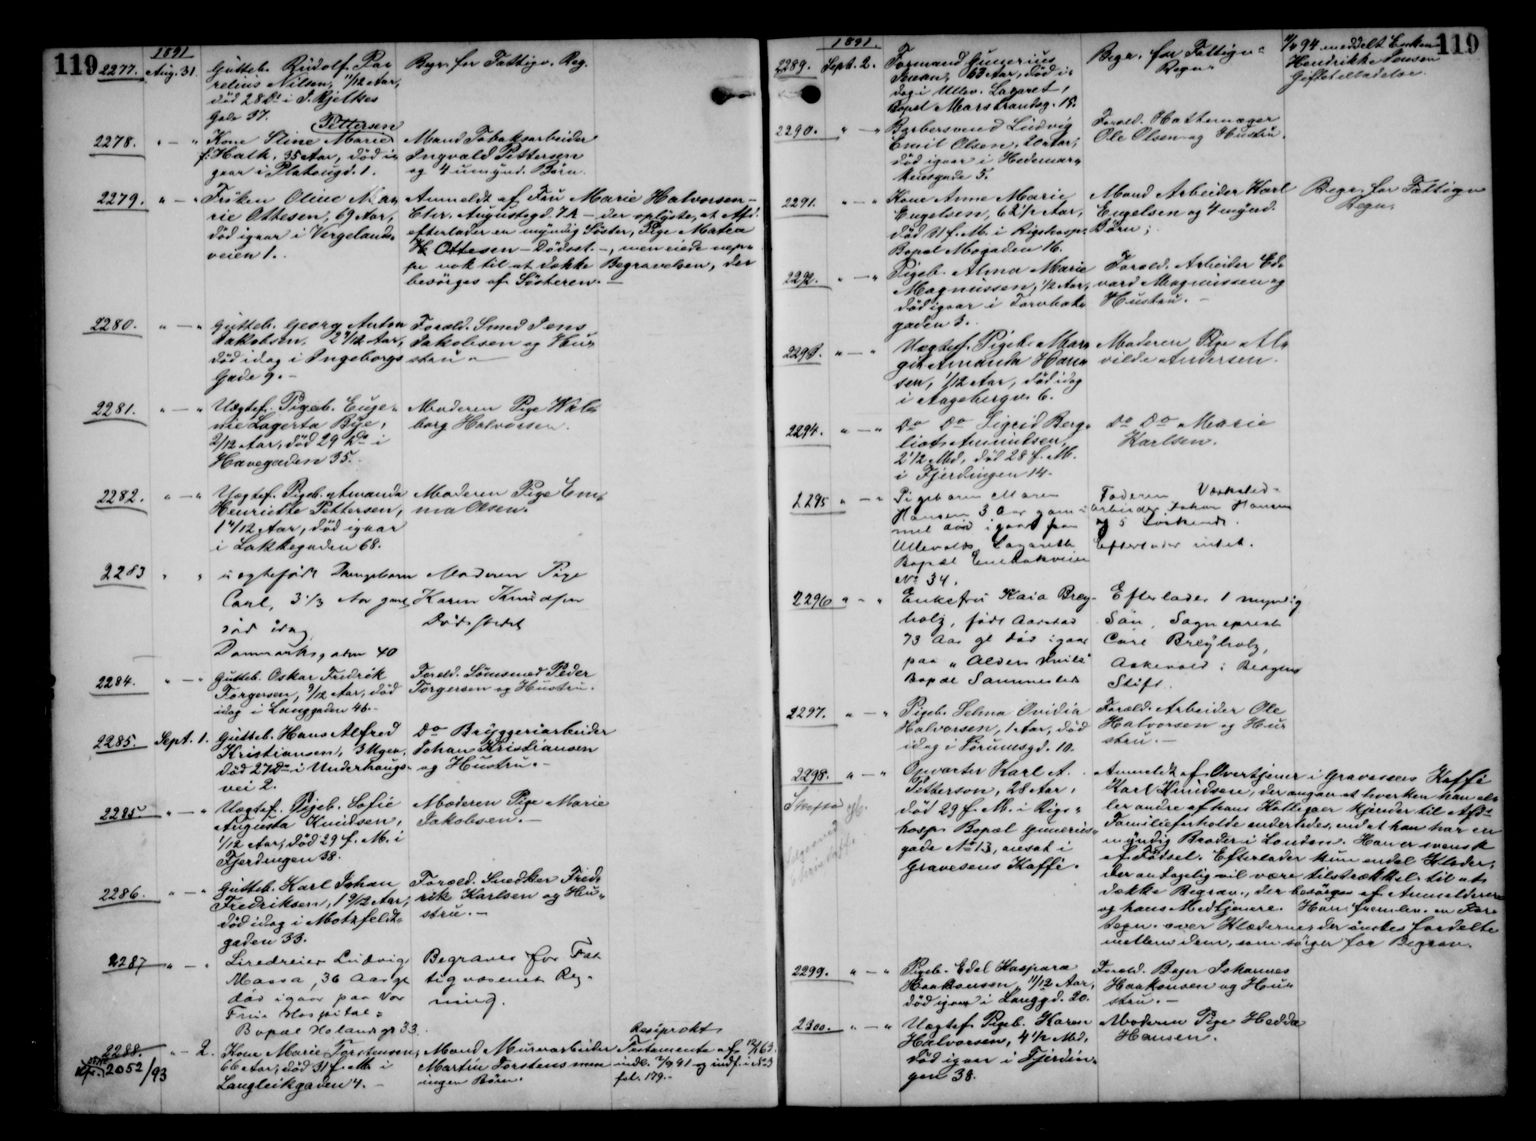 119
1891
2277. Aug. 31. Gutteb. Rudolf Pau-
relius Nilsen, 11/12 Aar,
död 28 Ds i
Gade 37.
Begr. for Fattigv. Reg.
Pettersen
2278. " — " Kone Stine Marie
f. Halk, 35 Aar, död i
gaar i Platousgd. 1.
Mand Tobaksarbeider
Ingvald Pettersen
og 4 umynd. Börn.
2279. " — " Fröken Oline Ma-
rie Ottesen, 69 Aar,
död igaar i Vergelands-
veien 1.
Anmeldt af Fru Marie Halvorsen —
Eter. Augustsgd. 7 A — der oplyste, at Afd.
efterlader en myndig Söster, Pige Matea
Ottesen — Dödsst. —, men eiede neppe
nok til at dække Begravelsen, der
besörges af Sösteren. —
2280. " — " Gutteb. Georg Anton
Jakobsen, 2 7/12 Aar,
död idag i Ingeborgs
Gade 9. —
Foræld. Smed Jens
Jakobsen og Hu-
stru —
2281. " — " Uægtef. Pigeb. Euge-
nie Lagerta Bye,
2/12 Aar, död 29 Ds i
Havegaden 35.
Moderen Pige Wal-
borg Halvorsen.
2282. " — " Uægtef. Pigeb. Amanda
Henriette Pettersen,
1 4/12 Aar, död igaar
i Lakkegaden 68.
Moderen Pige Em-
ma Olsen.
2283 " " uægtefödt Drengebarn
Carl, 3 1/3 Aar gml
död idag
Danmarksgaden 40
Moderen Pige
Karen Knudsen
Dödsstedet
2284. " — " Gutteb. Oskar Fredrik
Torgersen, 9/12 Aar, död
idag i Langgaden 46. —
Foræld. Lömsmed Peder
Torgersen og Hustru. —
2285. Sept. 1. Gutteb. Hans Alfred
Kristiansen, 3 Uger,
död 27 Ds i Underhaugs-
vei 2.
Do Bryggeriarbeider
Johan Kristiansen
og Hustru. —
2285 " — " Uægtef. Pigeb. Sofie
Augusta Knudsen,
1/12 Aar, död 29 f. M. i
Fjerdingen 38.
Moderen Pige Marie
Jakobsen. —
2286. " — " Gutteb. Karl Johan
Fredriksen, 1 9/12 Aar,
död idag i Motzfeldts-
gaden 33.
Foræld. Snedker Fred-
rik Karlsen og Hu-
stru. —
2287 " — " Ludvig
Massa, 36 Aar gl
död igaar paa Vor
Frue Hospital.
Bopæl Holandsgd 33.
Begraves for Fat-
tigvæsenets Reg-
ning.
2288. " — 2. Kone Marie Torstensen,
2052/93 66 Aar, död 31 f. M. i
Langleikgaden 4. —
Mand Murerarbeider
Martin Torstensen men
ingen Börn.
Resiprokt
Testamente af 12/1 63.
indl. 2/9 91 og indf. i No 3
fol. 179. —
119
1891.
2289. Sept. 2. Formand Gunerius
Jensen, 63 Aar, död i-
dag i Ullev. Lazaret,
Bopæl Marstrandsg. 15.
Begr. for Fattigv.
Regn.
94 meddelt Enken
Hendrikke Jensen
Giftetilladelse.
2290. " — " Barbersvend Ludvig
Emil Olsen, 20 Aar,
död igaar i Hedemar-
kensgade 5.
Foræld. Hattemager
Ole Olsen og Hustru.
2291. " — " Kone Anne Marie
Engelsen, 62 1/2 Aar,
död 31 f. M. i Rigshosp.
Bopæl Mogaden 16.
Mand Arbeider Karl
Engelsen og 4 mynd.
Börn;
Begr. for Fattigv
Regn.
2292. " — " Pigeb. Alma Marie
Magnussen, 1/2 Aar,
död igaar i Torvbak-
gaden 3.
Foræld. Arbeider Ed-
vard Magnussen og
Hustru. —
2293. " — " Uægtef. Pigeb. Mar-
git Amanda Han-
sen, 1/12 Aar, död idag
i Aagebergv. 6.
Moderen Pige Al-
vilde Andersen.
2294. " — " Do Do Sigrid Berg-
liot Amundsen,
2 1/2 Md, död 28 f. M.
i Fjerdingen 14.
Do Do Marie
Karlsen.
2295 " — " Pigebarn Maren
Hansen 3 Aar gam-
mel död igaar paa
Ullevolds Lazareth
Bopæl Enebakveien
No 34.
Faderen Værksted-
arbeider Johan Hansen
og 5 Söskende.
Efterlader intet.
2296 " — " Enkefru Kaia Brey-
holz, födt Aarstad
73 Aar gl död igaar
paa "Aldershvile"
Bopæl Sammested
Efterlader 1 myndig
Sön, Sogneprest
Carl Breyholz,
Askevold i Bergens
Stift.
2297. " — " Pigeb. Selma Ovidia
Halvorsen, 1 Aar, död
idag i Sörumsgd. 10.
Foræld. Arbeider Ole
Halvorsen og Hu-
stru. —
2298. " — " Opvarter Karl A.
Petterson, 28 Aar,
död 29 f. M. i Rigs-
hosp. Bopæl Gunerius-
gade No 13, ansat i
Gravesens Kaffé.
Anmeldt af Overtjener i Gravesens Kaffé
Karl Knudsen, der angav at hverken han el-
ler andre af hans Kolleger kjender til Afdes
Familieforholde anderledes, end at han har en
myndig Broder i London. Han er svensk
af Födsel. Efterlader kun endel Klæder,
der antagelig vil være tilstrækkel. til at
dække Begrav., der besörges af Anmelderen
og hans Medtjenere. Han fremlev. en For-
tegn. over Klæderne, der önskes fordelte
mellem dem, som sörger for Begrav.
2299. " — " Pigeb. Edel Kaspara
Haakonsen, 11/12 Aar,
död igaar i Langgd. 20.
Foræld. Bager Johannes
Haakonsen og Hu-
stru. —
2300. " — " Uægtef. Pigeb. Karen
Halvorsen, 4 1/2 Md.
död igaar i Fjerdin-
gen 38.
Moderen Pige Hedda
Hansen.